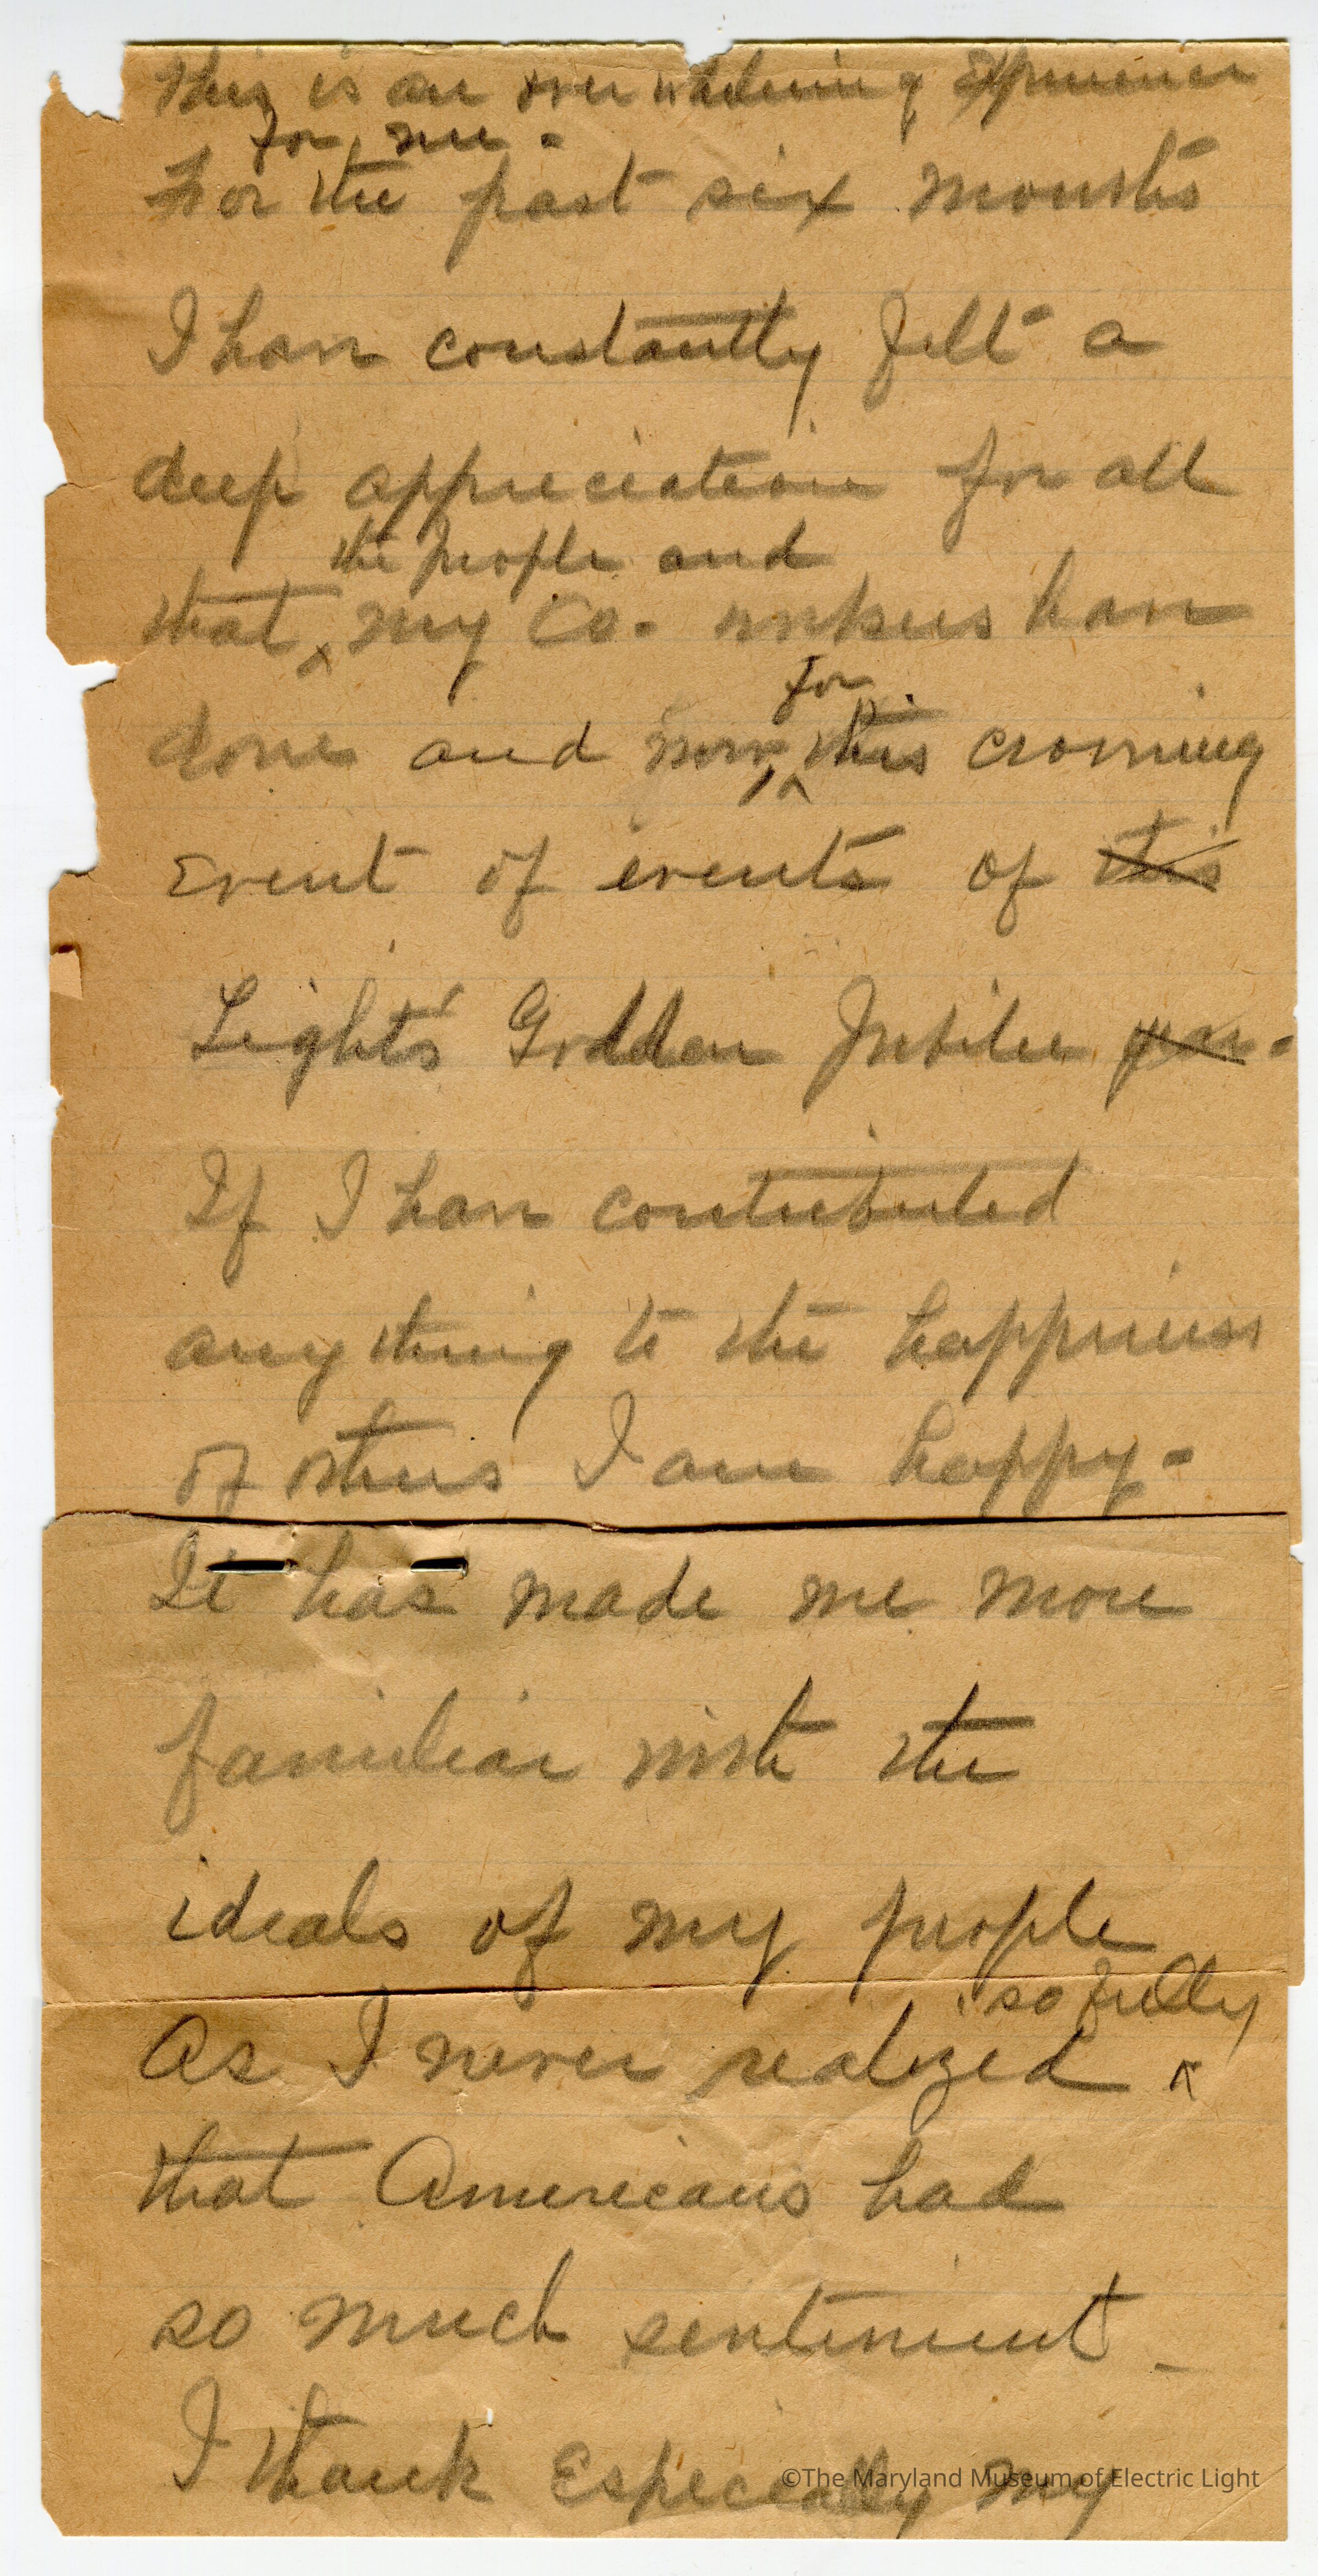 This is an overwhelming Experience
for me.
For the past six months
I have constantly felt a
deep appreciation for all
the people and
that my Co. workers have
done and now, for this crowning
Event of events of this
Light's Golden Jubilee year.
If I have contributed
anything to the happiness
of others I am happy.
It has made me more
familiar with the
ideals of my people
so fully
As I never realized
that Americans had
so much sentiment
I thank Especially my
©The Maryland Museum of Electric Light